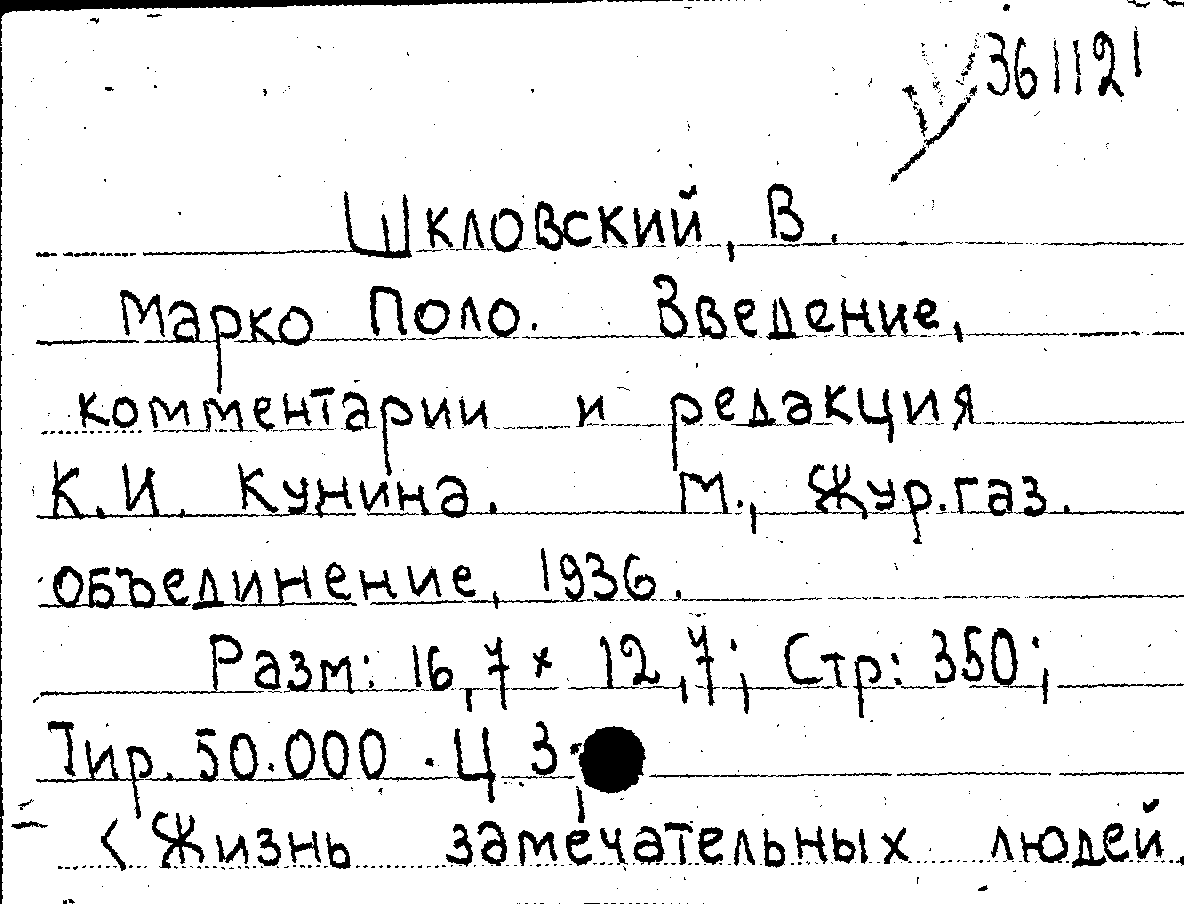 361121
Шкловский, В.
Марко Поло. Введение,
комментарии и редакция
К.И. Кунина. М., Жур.газ.
объединение, 1936.
Разм: 16,7 × 12,7; Стр: 350;
Тир. 50.000. Ц 3
<Жизнь замечательных людей.